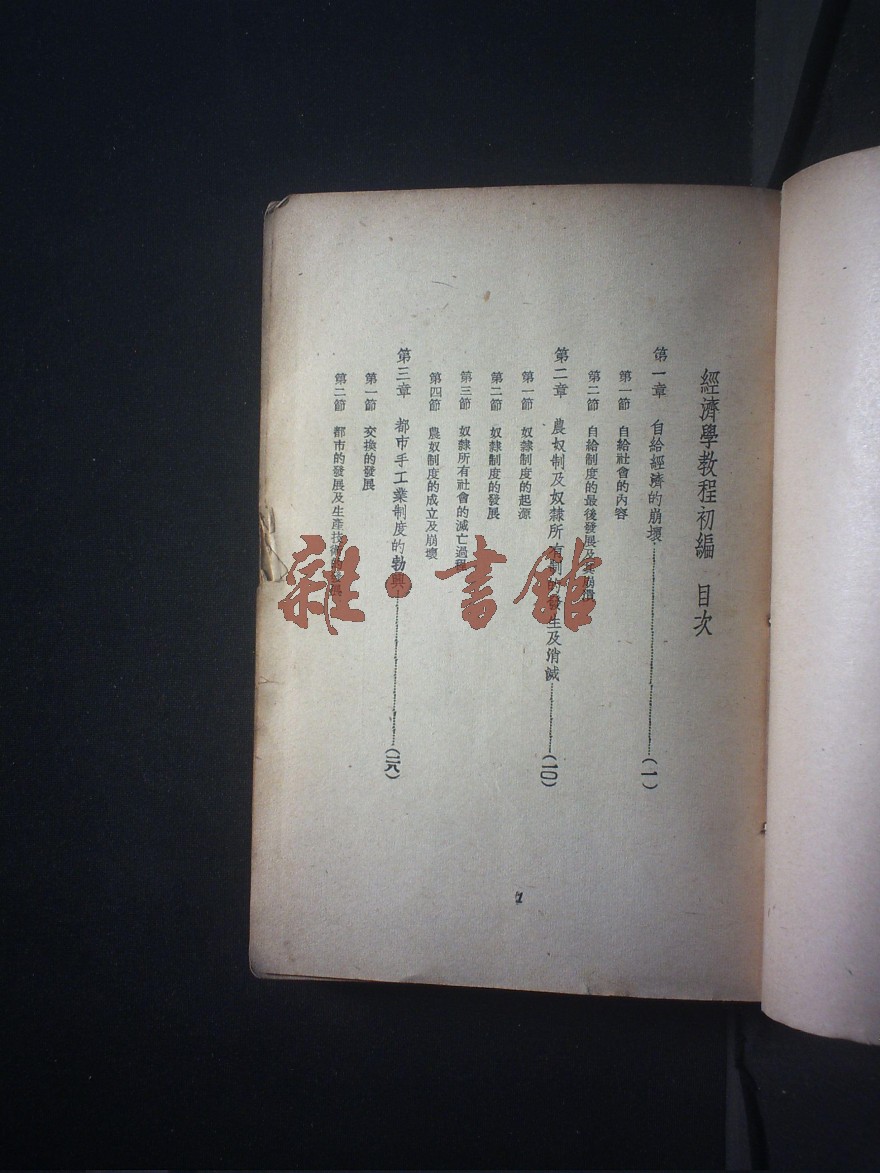 經濟學教程初編 目次
第一章 自給經濟的崩壞……(一)
第一節 自給社會的內容
第二節 自給制度的最後發展及其崩潰
第二章 農奴制及奴隸所有制的發生及消滅……(一〇)
第一節 奴隸制度的起源
第二節 奴隸制度的發展
第三節 奴隸所有社會的滅亡過程
第四節 農奴制度的成立及崩壞
第三章 都市手工業制度的勃興……(二八)
第一節 交換的發展
第二節 都市的發展及生產技術的發展
1
雜·書館